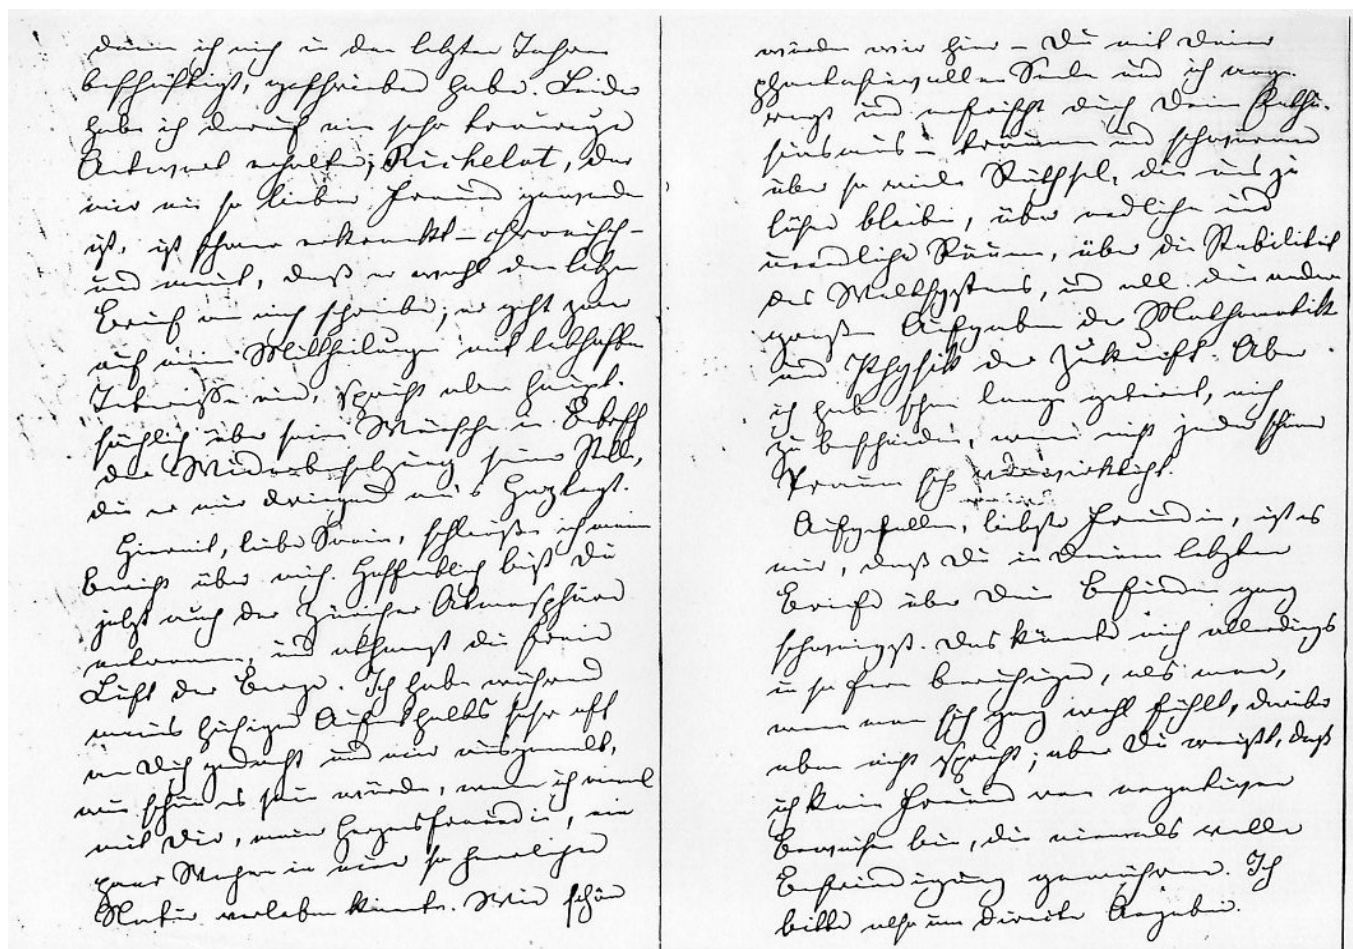 denen ich mich in den letzten Jahren
beschäftigt, geschrieben habe. Leider
habe ich darauf eine sehr traurige
Antwort erhalten; Richelot, der
mir ein so lieber Freund geworden
ist, ist schwer erkrankt – chronisch –
und meint, daß er wohl den letzten
Brief an mich schreibe; er geht zwar
auf meine Mittheilungen mit lebhaftem
Interesse ein, spricht aber haupt-
sächlich über seine Wünsche in Betreff
der Wiederbesetzung seiner Stelle,
die er mir dringend ans Herz legt.
Hiermit, liebe Sonia, schließe ich meinen
Bericht über mich. Hoffentlich bist Du
jetzt auch der Züricher Atmosphäre
entronnen, und athmest die freie
Luft der Berge. Ich habe während
meines hiesigen Aufenthalts sehr oft
an Dich gedacht und mir ausgemalt,
wie schön es sein würde, wenn ich einmal
mit Dir, meine Herzensfreundin, ein
paar Wochen in einer so herrlichen
Natur verleben könnte. Wie schön
würden wir hier – Du mit Deiner
phantasievollen Seele und ich ange-
regt und erfrischt durch Deinen Enthu-
siasmus – träumen und schwärmen
über so viele Räthsel, die uns zu
lösen bleiben, über endliche und
unendliche Räume, über die Stabilität
des Weltsystems, und all die andern
großen Aufgaben der Mathematik
und Physik der Zukunft. Aber
ich habe schon lange gelernt, mich
zu bescheiden, wenn nicht jeder schöne
Traum sich verwirklicht.
Aufgefallen, liebste Freundin, ist es
mir, daß Du in Deinem letzten
Briefe über Dein Befinden ganz
schweigst. Das könnte mich allerdings
in so fern beruhigen, als man,
wenn man sich ganz wohl fühlt, darüber
eben nicht spricht; aber Du weißt, daß
ich kein Freund von negativen
Beweisen bin, die niemals volle
Befriedigung gewähren. Ich
bitte also um directe Angaben.